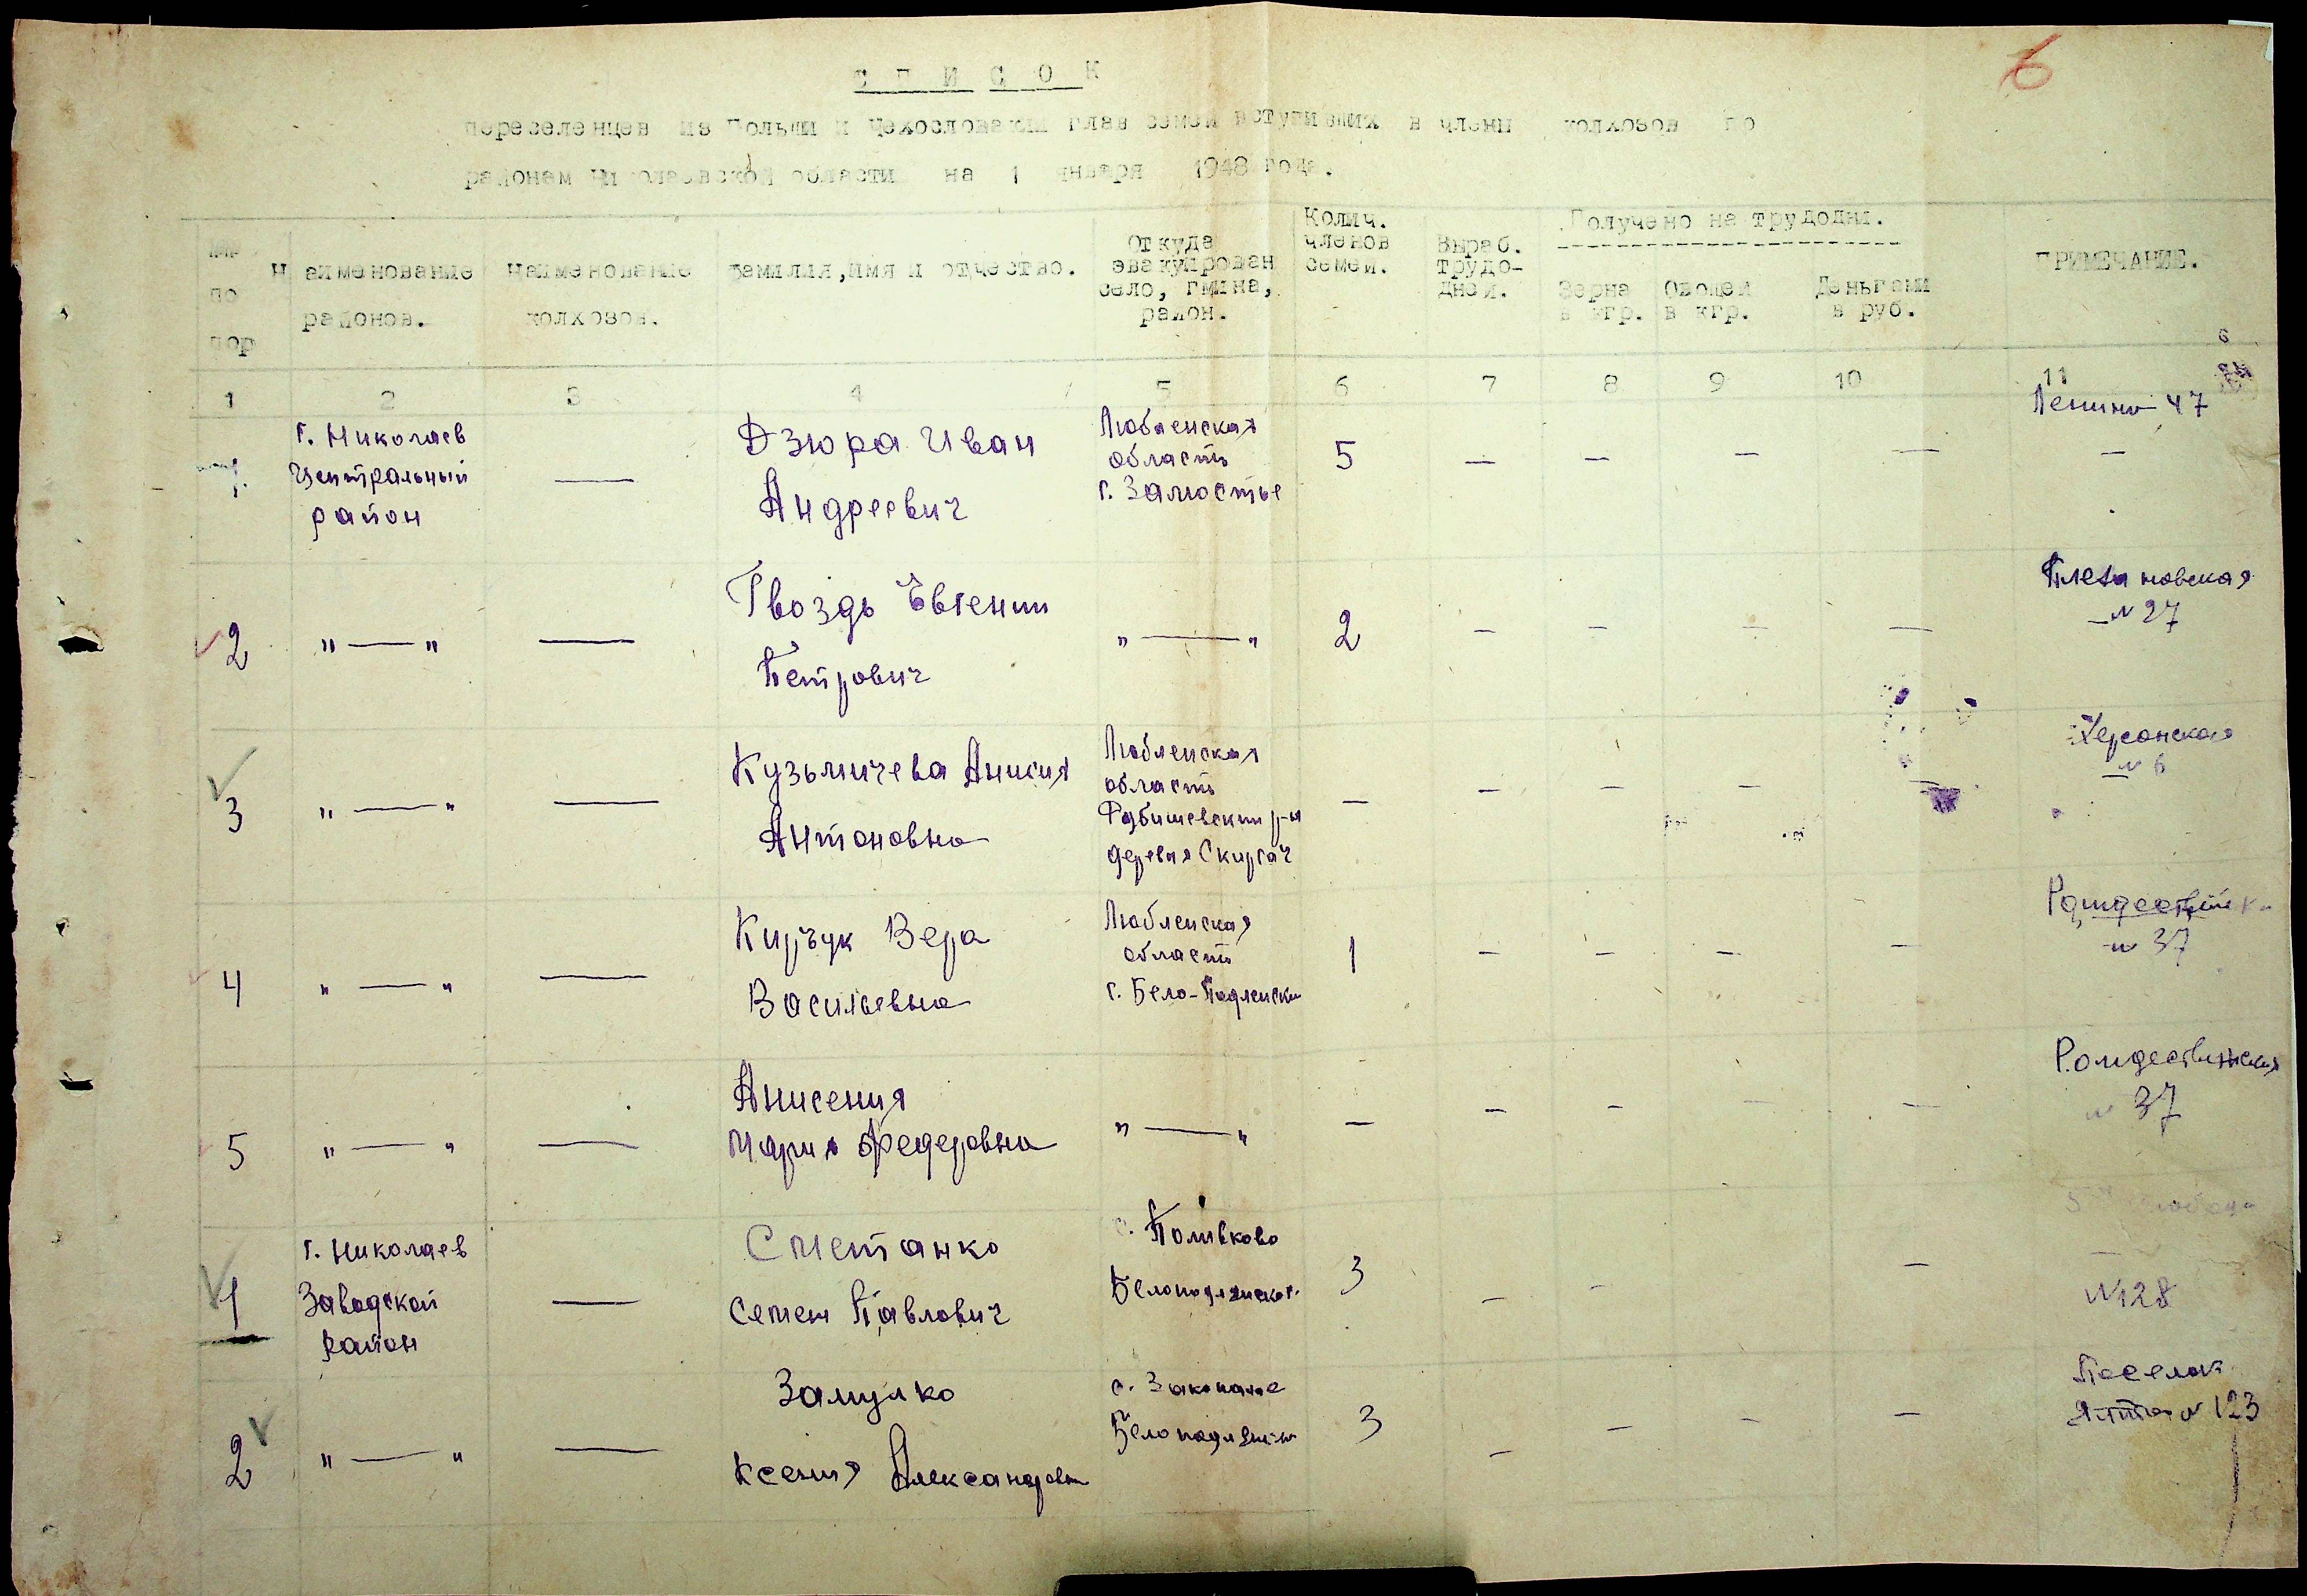 6
С П И С О К
переселенцев из Польши и Чехословакии глав семей вступивших в члены колхозов по
районам Николаевской области на 1 января 1948 года.
по
пор
Наименование
районов.
Наименование
колхозов.
Фамилия, имя и отчество.
Откуда
эвакуирован
село, гмина,
район.
Колич.
членов
семей.
Выраб.
трудо-
дней.
Получено на трудодни.
Зерна
в кгр.
Овощей
в кгр.
Деньгами
в руб.
ПРИМЕЧАНИЕ.
6
1 2 3 4 5 6 7 8 9 10 11
1.
г. Николаев
Центральный
район
—
Дзюра Иван
Андреевич
Любленская
область
г. Замостье
5 — — — —
Ленина 47
—
2 " — " —
Гвоздь Евгений
Петрович
" — " 2 — — — —
№ 27
3 " — " —
Кузьмичева Анисия
Антоновна
Любленская
область
р-н
деревня
— — — — —
Херсонская
№ 6
4 " — " —
Кирчук Вера
Васильевна
Любленская
область
г. Бело-Подленски
1 — — — —
№ 37
5 " — " —
Анисения
Мария Федеровна
" — " — — — — —
Рождественская
№ 37
1
г. Николаев
Заводской
район
—
Сметанко
Семен Павлович
с.
3 — — —
№128
2 " — " —
Замулко
Ксения Александровн
с.
3 — — — —
Поселок
№ 123